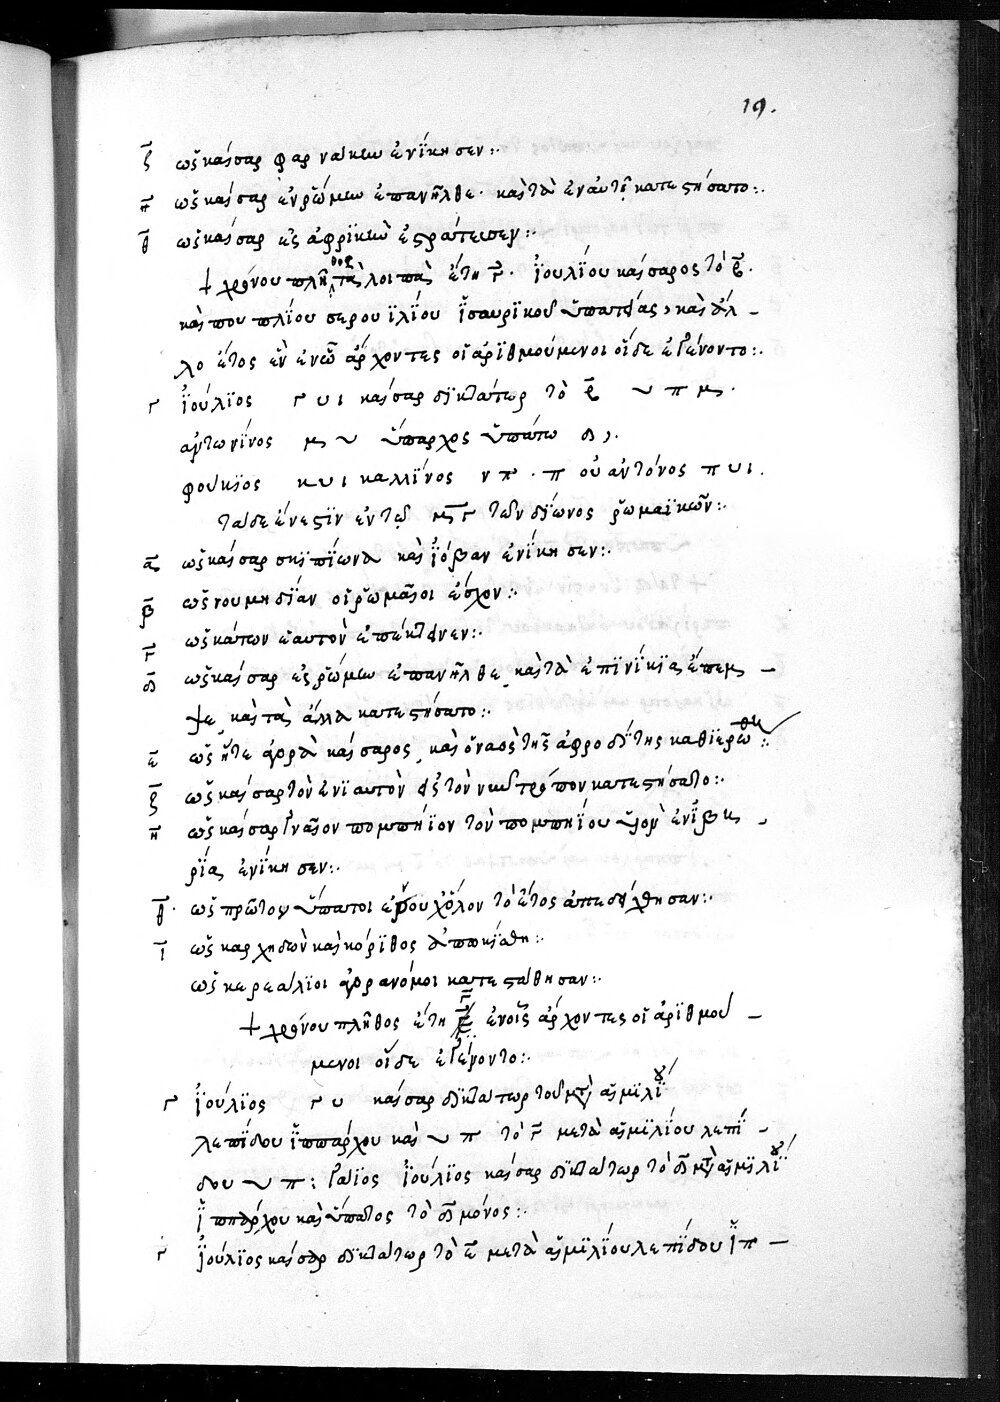 19.
ζ ὡς καίσαρ φαρνάκην ἐνίκησεν:·
η ὡς καίσαρ ἐν ῥώμην ἐπανῆλθε· καὶ τὰ ἐν αὐτῇ κατεστήσατο:·
θ ὡς καίσαρ ἐς ἀφρικὴν ἐστράτευσεν:·
+ χρόνου πλῆθος τὰ λοιπὰ ἔτη γ· ἰουλίου καίσαρος τὸ β
καὶ που πλίου σερουιλίου ἰσαυρικοῦ ὑπατείας, καὶ ἄλ –
λο ἔτος ἓν ἐν ᾧ ἄρχοντες οἱ ἀριθμούμενοι οἵδε ἐγένοντο:·
Γ ἰούλιος Γ υι καίσαρ δικτάτωρ τὸ β υ π μ.
ἀντωνῖνος μ υ ὕπαρχος ὑπάτω
φούκιος κ υι καλλῖνος ν π· π οὐαντόνος π υι.
τάδε ἔνεστιν ἐν τῷ μγ τῶν δίωνος ῥωμαϊκῶν:·
α ὡς καίσαρ σκιπίωνα καὶ ἰόβαν ἐνίκησεν:·
β ὡς νουμηδίαν οἱ ῥωμαῖοι ἔσχον:·
γ ὡς κάτων ἑαυτὸν ἀπέκτεινεν:·
δ ὡς καίσαρ ἐς ῥώμην ἐπανῆλθε, καὶ τὰ ἐπινίκια ἔπεμ –
ψε, καὶ τὰ ἄλλα κατεστήσατο:·
ε ὡς ἥτε ἀγορὰ καίσαρος, καὶ ὁ ναὸς τῆς ἀφροδίτης καθιερώθη:·
ζ ὡς καίσαρ τὸν ἐνιαυτὸν ἐς τὸν νῦν τρόπον κατεστήσατο:·
η ὡς καίσαρ γναῖον πομπήιον τὸν πομπηίου υἱὸν ἐν ἰβη –
ρίᾳ ἐνίκησεν:·
θ· ὡς πρῶτον ὕπατοι οὐχ ὅλον τὸ ἔτος ἀπεδείχθησαν:·
ι ὡς καρχηδὼν καὶ κόριθος ἀπῳκίσθη:·
ὡς κερεάλιοι ἀγορανόμοι κατεστάθησαν:·
+ χρόνου πλῆθος ἔτη γ ἐν οἷς ἄρχοντες οἱ ἀριθμού –
μενοι οἵδε ἐγένοντο:·
Γ ἰούλιος Γ υ καίσαρ δικτάτωρ τὸ γ μετὰ αἰμιλίου
λεπίδου ἱππάρχου καὶ υ π τὸ γ μετὰ αἰμιλίου λεπί –
δου υ π: γάιος ἰούλιος καίσαρ δικτάτωρ τὸ δ μετὰ αἰμιλίου
ἱππάρχου καὶ ὕπατος τὸ δ μόνος:·
Γ ἰούλιος καίσαρ δικτάτωρ τὸ ε μετὰ αἰμιλίου λεπίδου ἱπ –